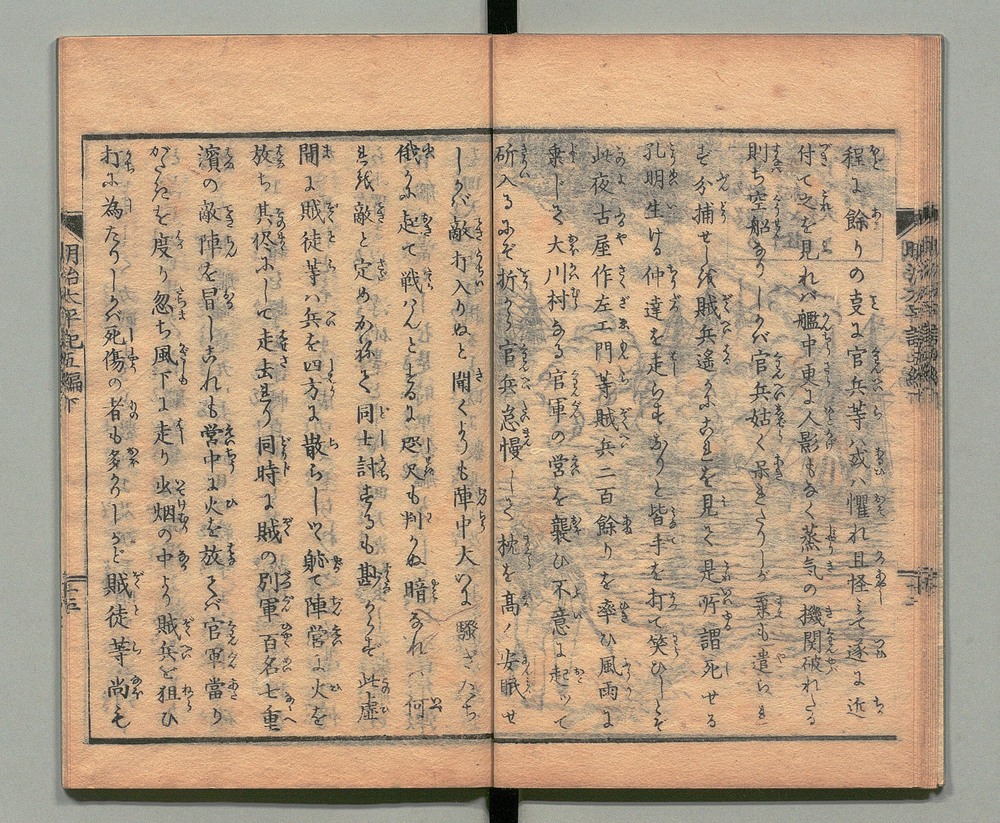 程に餘りの㕝に官兵等ハ或ハ懼れ且怪ミて遂に近
付て之を見れバ艦中更に人影もなく蒸気の機関破れたる
則ち空船なりしかバ官兵姑く呆きたりしが乗も遣らま
ず分捕せしを賊兵遥かに之を見て是所謂死せる
孔明生ける仲達を走らすなりと皆手を打て笑ひしとぞ
此夜古屋作左エ門等賊兵二百餘りを率ひ風雨に
乗じて大川村なる官軍の営を襲ひ不意に起つて
斫入るにぞ折から官兵怠慢して枕を高く安眠せ
しかバ敵打入りぬと聞くよりも陣中大いに騒ぎたち
俄かに起て戦ハんとするに咫尺も判かぬ暗なれバ何
れを敵と定めかねて同士討するも尠からず此虚
間に賊徒等ハ兵を四方に散らしつゝ軈て陣営に火を
放ち其侭にして走去り同時に賊の別軍百名七重
濱の敵陣を冒しこれも営中に火を放てバ官軍當り
がたきを度り忽ち風下に走り出烟の中より賊兵を狙ひ
打に為たりしかバ死傷の者も多かりしかど賊徒等尚も
明治太平記五編下